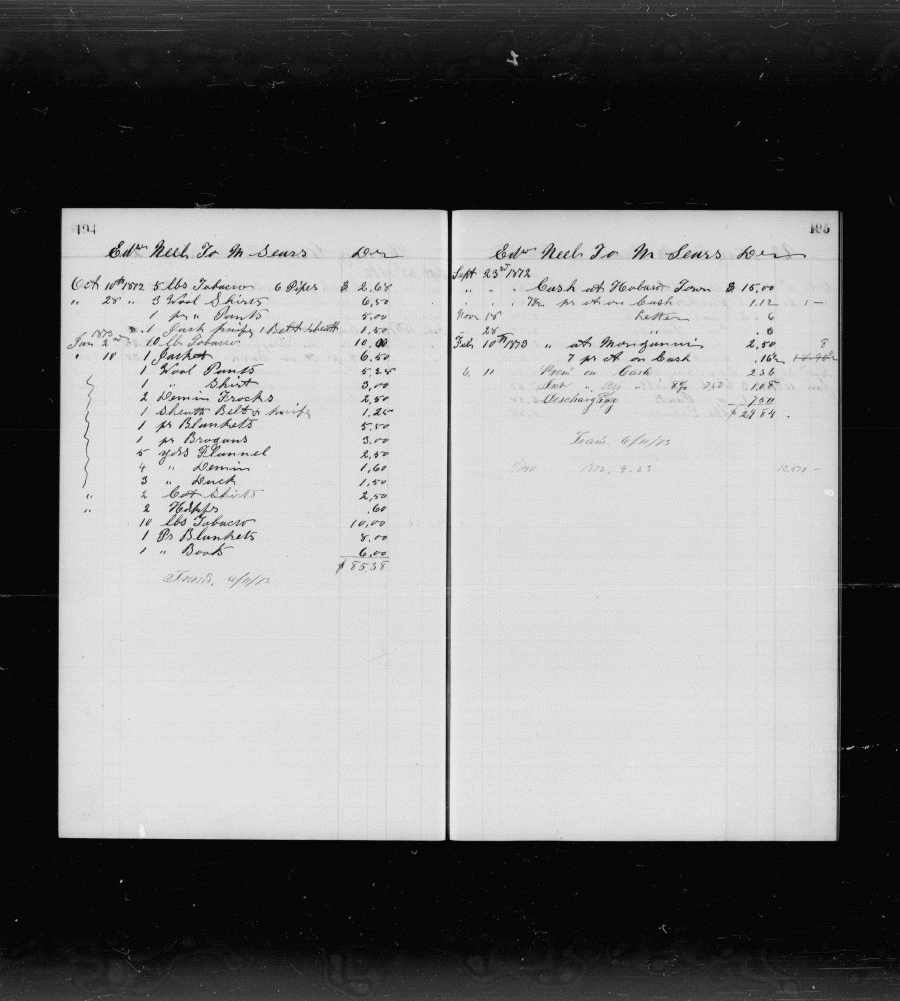 194
Edwr Neeb To M Sears Dr
Oct 10th 1872 5 lbs Tobacco 6 Pipes $ 2,68
" 28 " 3 Wool Shirts 6,50
1 pr " Pants 5,00
" " 1 Jack knife, 1 Belt & Sheath 1,50
1873
Jan 2nd 10 lbs Tobacco 10,00
" 10 1 Jacket 6,50
1 Wool Pants 5,25
1 " Shirt 3,00
2 Demin Frocks 2,50
1 Sheath Belt & knife 1,25
1 pr Blankets 5,50
1 pr Brogans 3,00
5 yds Flannel 2,50
4 " Demin 1,60
3 " Duck 1,50
" 2 Cot Shirts 2,50
" 2 Hdkfs .60
10 lbs Tobacco 10,00
1 Pr Blankets 8,00
1 " Boots 6,00
$ 85,38
Trans. 6/11/73
195
Edwr Neeb To M Sears Dr
Sept 23rd 1872
" " . Cash at Hobard Town $ 15,00
" " . 7½ pr ct on Cash 1,12 1 —
Nov 18 Letter . 6
" 28 " . 3
Feb 10th 1873 " at Monganni 2,50 8
7 pr ct on Cash .16½
6. 11 Prem on Cash 236
Int " " 8% 750 1,08
Discharging 750
$ 29 84 .
Trans 6/11/73
1872. 9. 23